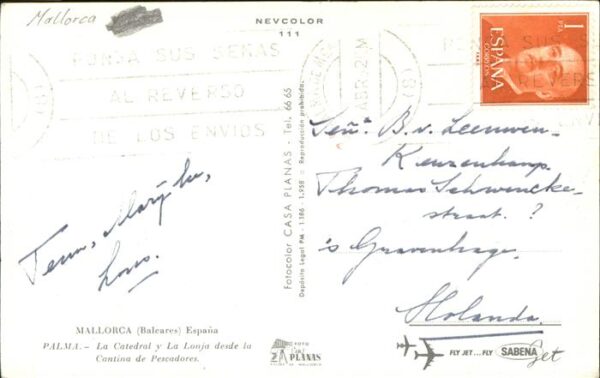 Mallorca
NEVCOLOR
111
PONGA SUS SEÑAS
AL REVERSO
DE LOS ENVIOS
ABR. 2
PONGA SUS
AL REVERSO
1
PTA
ESPAÑA
CORREOS
Señª B. v. Leeuwen-
Keuzenkamp.
Thomas Schwencke-
straat. ?
's Gravenhage.
Holanda.
Teun,
Loes.
Fotocolor CASA PLANAS - Tel. 6665
Depósito Legal PM - 1386 - 1.958 - Reproducción prohibida.
MALLORCA (Baleares) España
PALMA.- La Catedral y La Lonja desde la
Cantina de Pescadores.
FOTO
CASA
PLANAS
PALMA DE MALLORCA
FLY JET...FLY SABENA Jet